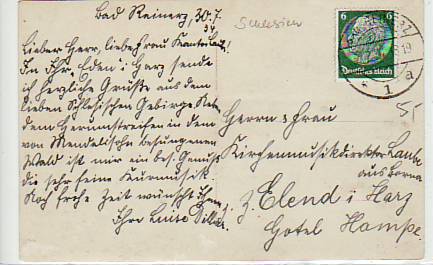 Bad Reinerz, 30.7.
34
Schlesien
Lieber Herr, liebe Frau Kantorka!
In Ihr "Eden" i. Harz sende
ich herzliche Grüße aus dem
lieben Schlesischen Gebirge.
dem Herumstreifen in dem
von Mendelssohn besungenen
Wald ist mir ein bes. Genuß
die sehr feine Kurmusik
Noch frohe Zeit wünscht Ihnen
Ihre Luise
6 6
Deutsches Reich
1 a
Herrn & Frau
Kirchenmusikdirektor Laube
aus Borna
z. Elend i. Harz
Hotel Hampe.